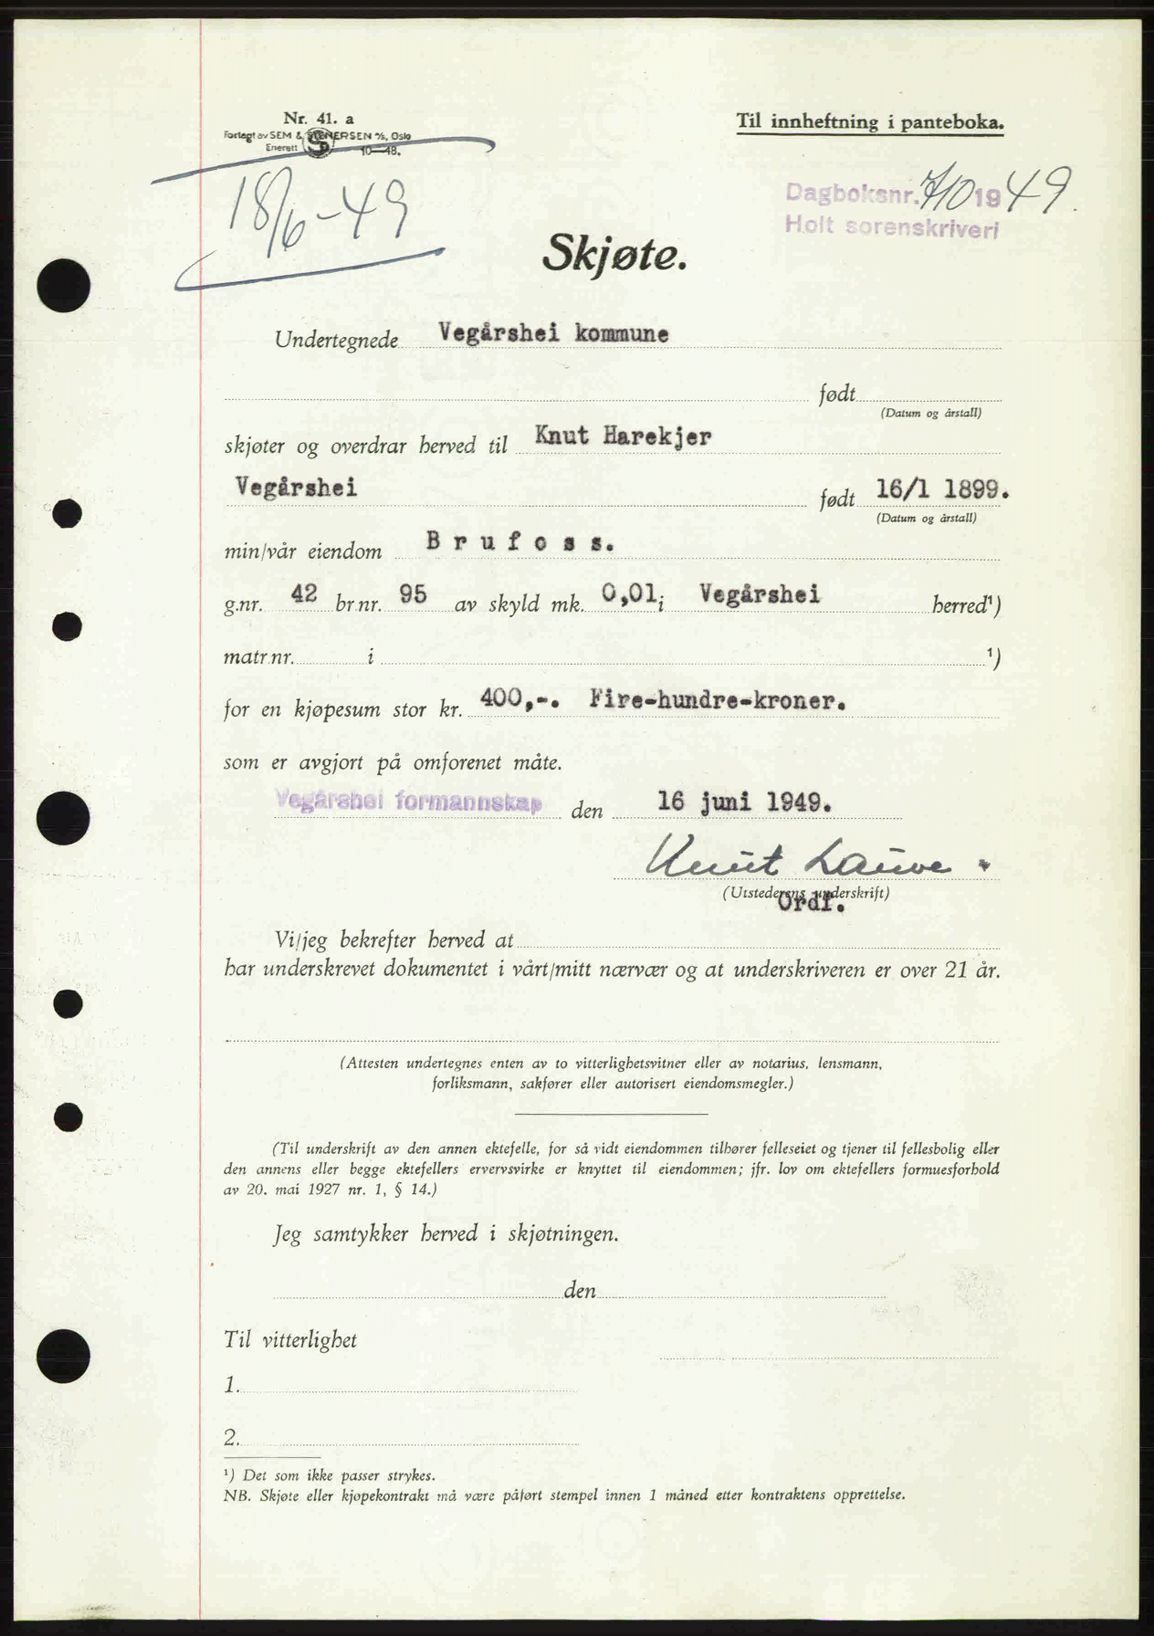 Nr. 41. a
Til innheftning i panteboka.
Forlagt av SEM & STENERSEN A/S, Oslo
Enerett 10—48.
18/6-49
Dagboksnr. 710 1949
Holt sorenskriveri
Skjøte.
Undertegnede Vegårshei kommune
født
(Datum og årstall)
skjøter og overdrar herved til Knut Harekjer
Vegårshei født 16/1 1899.
(Datum og årstall)
min/vår eiendom B r u f o s s.
g.nr. 42 br.nr. 95 av skyld mk. 0,01 i Vegårshei herred¹)
matr.nr. i ¹)
for en kjøpesum stor kr. 400,-. Fire-hundre-kroner.
som er avgjort på omforenet måte.
Vegårshei formannskap den 16 juni 1949.
Knut Lauve
(Utstederens underskrift)
Ordf.
Vi/jeg bekrefter herved at
har underskrevet dokumentet i vårt/mitt nærvær og at underskriveren er over 21 år.
(Attesten undertegnes enten av to vitterlighetsvitner eller av notarius, lensmann,
forliksmann, sakfører eller autorisert eiendomsmegler.)
(Til underskrift av den annen ektefelle, for så vidt eiendommen tilhører felleseiet og tjener til fellesbolig eller
den annens eller begge ektefellers ervervsvirke er knyttet til eiendommen; jfr. lov om ektefellers formuesforhold
av 20. mai 1927 nr. 1, § 14.)
Jeg samtykker herved i skjøtningen.
den
Til vitterlighet
1.
2.
¹) Det som ikke passer strykes.
NB. Skjøte eller kjøpekontrakt må være påført stempel innen 1 måned etter kontraktens opprettelse.